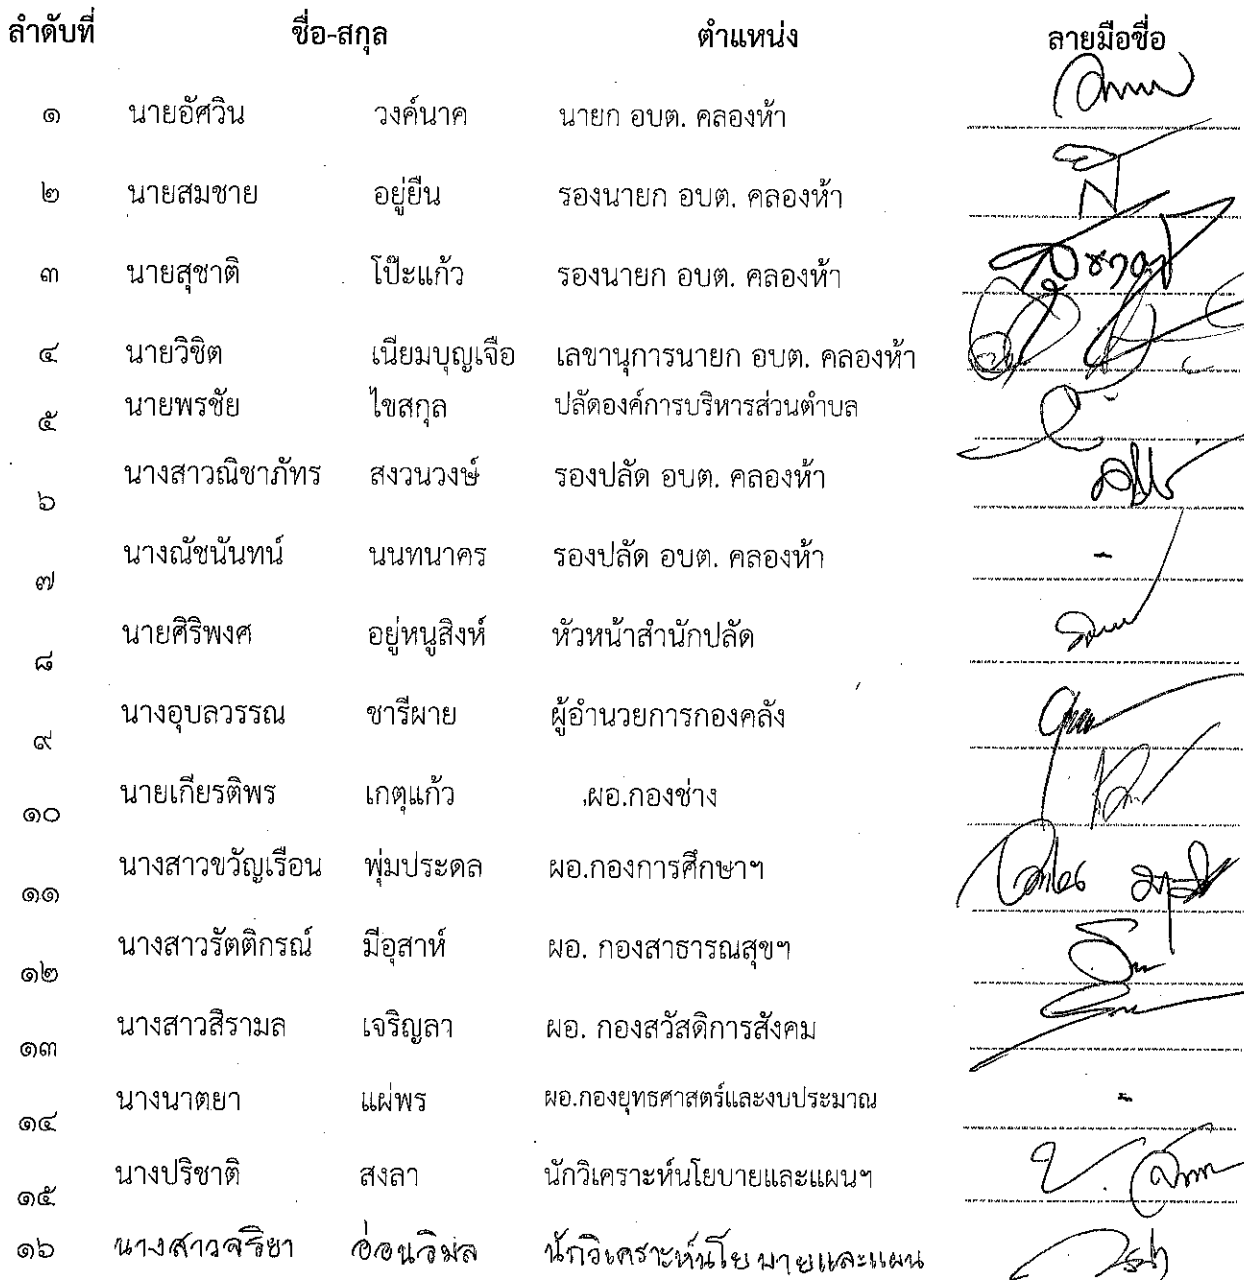 ลำดับที่ ชื่อ-สกุล ตำแหน่ง ลายมือชื่อ
๑ นายอัศวิน วงค์นาค นายก อบต. คลองห้า
๒ นายสมชาย อยู่ยืน รองนายก อบต. คลองห้า
๓ นายสุชาติ โป๊ะแก้ว รองนายก อบต. คลองห้า
๔ นายวิชิต เนียมบุญเจือ เลขานุการนายก อบต. คลองห้า
๕ นายพรชัย ไขสกุล ปลัดองค์การบริหารส่วนตำบล
๖ นางสาวณิชาภัทร สงวนวงษ์ รองปลัด อบต. คลองห้า
๗ นางณัชนันทน์ นนทนาคร รองปลัด อบต. คลองห้า -
๘ นายศิริพงศ อยู่หนูสิงห์ หัวหน้าสำนักปลัด
๙ นางอุบลวรรณ ชารีผาย ผู้อำนวยการกองคลัง
๑๐ นายเกียรติพร เกตุแก้ว ผอ.กองช่าง
๑๑ นางสาวขวัญเรือน พุ่มประดล ผอ.กองการศึกษาฯ
๑๒ นางสาวรัตติกรณ์ มีอุสาห์ ผอ. กองสาธารณสุขฯ
๑๓ นางสาวสิรามล เจริญลา ผอ. กองสวัสดิการสังคม
๑๔ นางนาตยา แผ่พร ผอ.กองยุทธศาสตร์และงบประมาณ -
๑๕ นางปริชาติ สงลา นักวิเคราะห์นโยบายและแผนฯ
๑๖ นางสาวจริยา อ่อนวิมล นักวิเคราะห์นโยบายและแผน